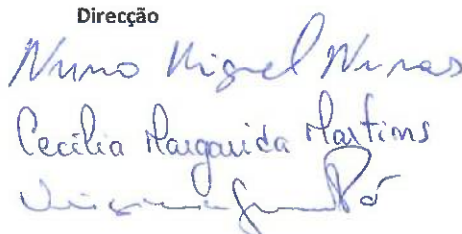 Direcção
Nuno Miguel Nunes
Cecília Margarida Martins